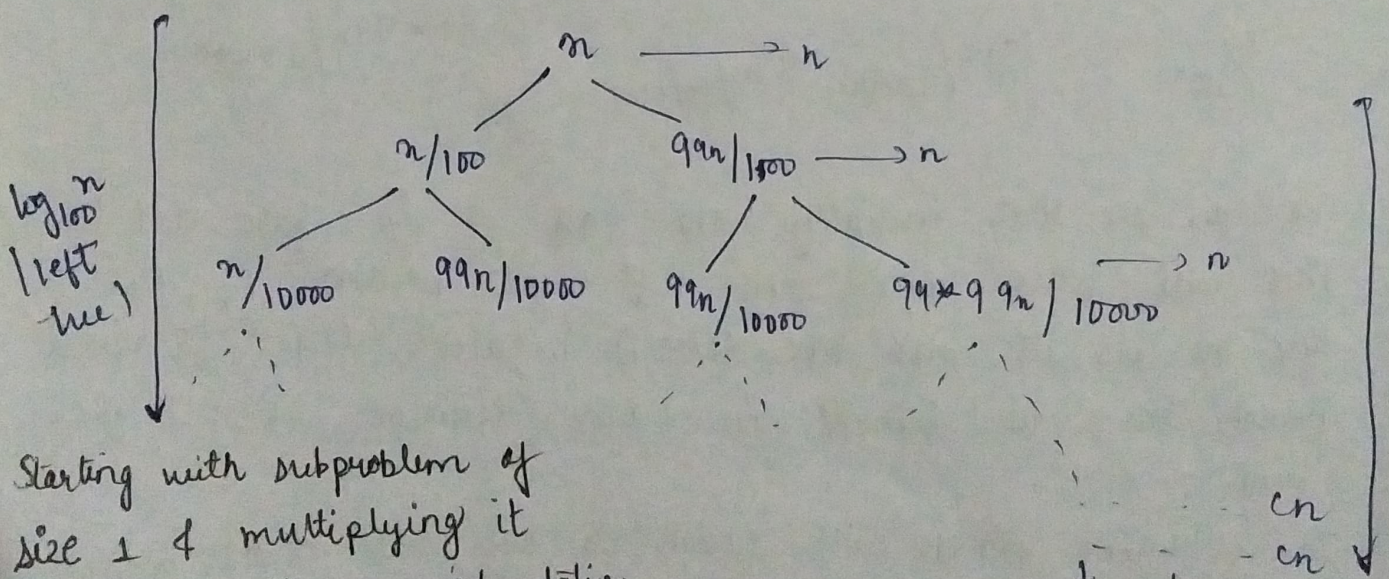 n → n
n/100 99n/100 → n
log100 n
(left
tree)
n/10000 99n/10000 99n/10000 99*99n/10000 → n
Starting with subproblem of
size 1 & multiplying it
cn
cn